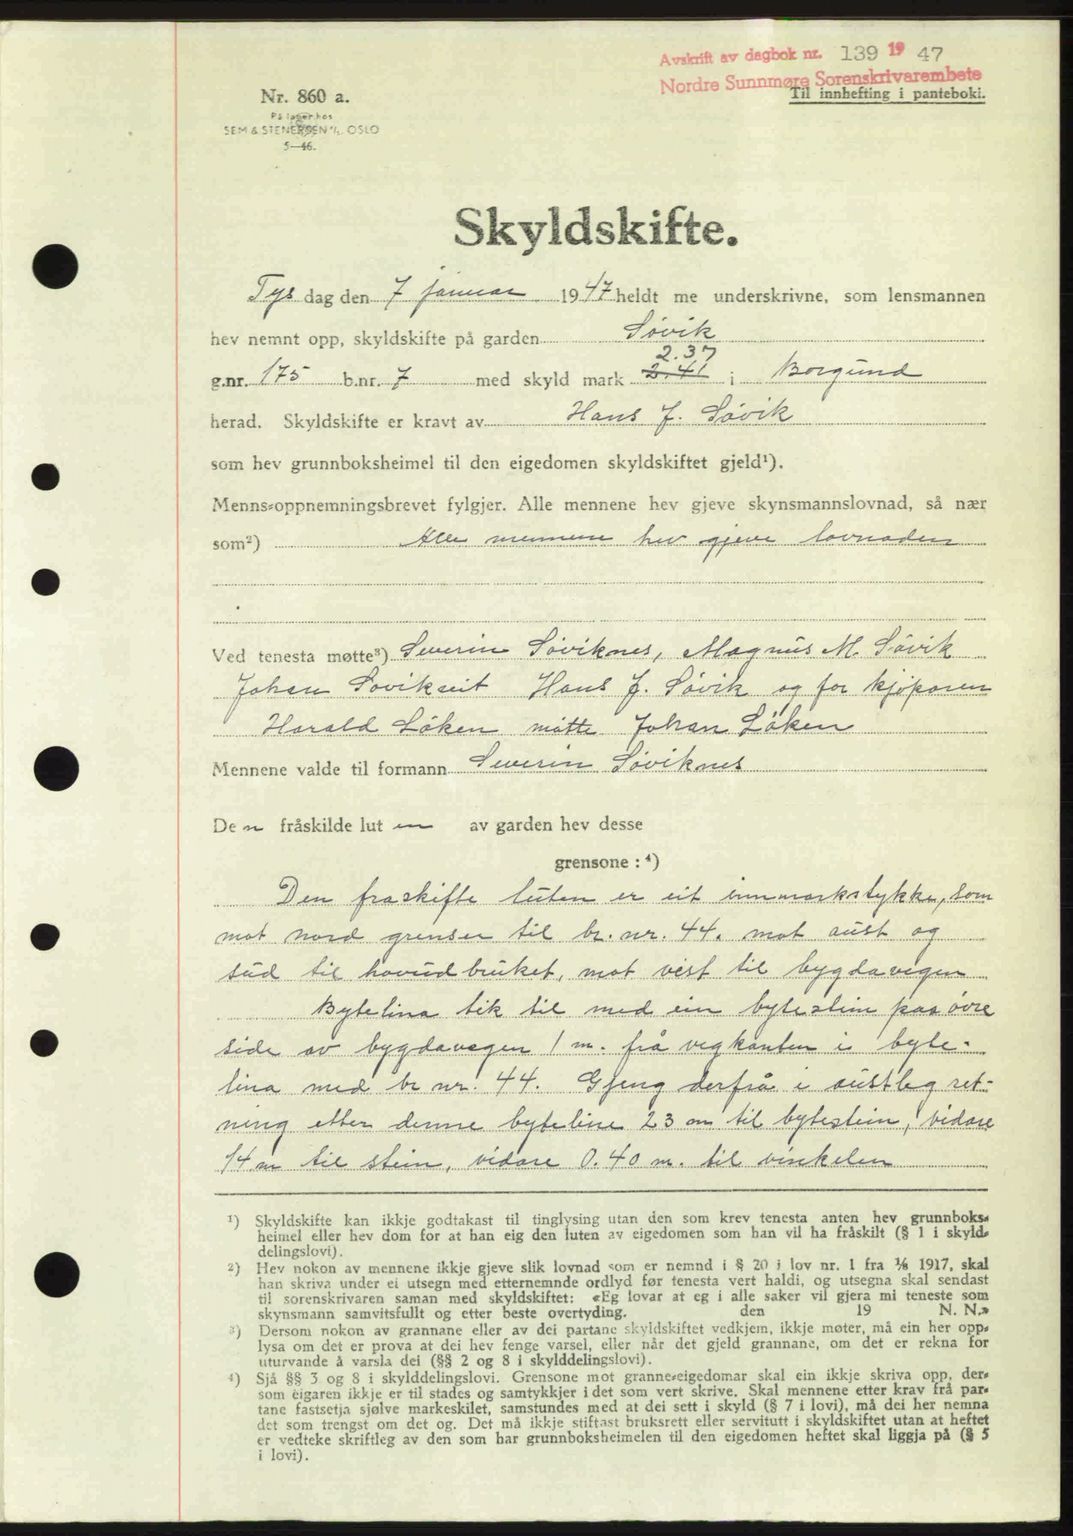 Avskrift av dagbok nr. 139 19 47
Nordre Sunnmøre Sorenskrivarembete
Til innhefting i panteboki.
Nr. 860 a.
På lager hos
SEM & STENERSEN A/S OSLO
5—46.
Skyldskifte.
Tys dag den 7 januar 1947 heldt me underskrivne, som lensmannen
hev nemnt opp, skyldskifte på garden Søvik
2.37
g.nr. 175 b.nr. 7 med skyld mark 2.41 i Borgund
herad. Skyldskifte er kravt av Hans J. Søvik
som hev grunnboksheimel til den eigedomen skyldskiftet gjeld¹).
Menns-oppnemningsbrevet fylgjer. Alle mennene hev gjeve skynsmannslovnad, så nær
som²) Alle mennene hev gjeve lovnaden
Ved tenesta møtte³) Severin Søviknes, Magnus M. Søvik
Johan Søvikseit Hans J. Søvik og for kjøparen
Harald Løken møtte Johan Løken
Mennene valde til formann Severin Søviknes
Den fråskilde luten av garden hev desse
grensone : ⁴)
Den fraskifte luten er eit innmarkstykke, som
mot nord grenser til br. nr. 44. mot aust og
sud til hovudbruket, mot vest til bygdavegen
Bytelina tek til med ein bytestein paa övre
side av bygdavegen 1 m. frå vegkanten i byte-
lina med br nr. 44. Gjeng derfrå i austleg ret-
ning etter denne byteline 23 m til bytestein, vidare
14 m til stein, vidare 0.40 m. til vinkelen
¹) Skyldskifte kan ikkje godtakast til tinglysing utan den som krev tenesta anten hev grunnboks-
heimel eller hev dom for at han eig den luten av eigedomen som han vil ha fråskilt (§ 1 i skyld-
delingslovi).
²) Hev nokon av mennene ikkje gjeve slik lovnad som er nemnd i § 20 i lov nr. 1 fra 1/6 1917, skal
han skriva under ei utsegn med etternemnde ordlyd før tenesta vert haldi, og utsegna skal sendast
til sorenskrivaren saman med skyldskiftet: «Eg lovar at eg i alle saker vil gjera mi teneste som
skynsmann samvitsfullt og etter beste overtyding. den 19 N. N.»
³) Dersom nokon av grannane eller av dei partane skyldskiftet vedkjem, ikkje møter, må ein her opp-
lysa om det er prova at dei hev fenge varsel, eller når det gjeld grannane, om det er rekna for
uturvande å varsla dei (§§ 2 og 8 i skylddelingslovi).
⁴) Sjå §§ 3 og 8 i skylddelingslovi. Grensone mot granne-eigedomar skal ein ikkje skriva opp, der-
som eigaren ikkje er til stades og samtykkjer i det som vert skrive. Skal mennene etter krav frå par-
tane fastsetja sjølve markeskilet, samstundes med at dei sett i skyld (§ 7 i lovi), må dei her nemna
det som trengst om det og. Det må ikkje stiftast bruksrett eller servitutt i skyldskiftet utan at heftet
er vedteke skriftleg av den som har grunnboksheimelen til den eigedomen heftet skal liggja på (§ 5
i lovi).